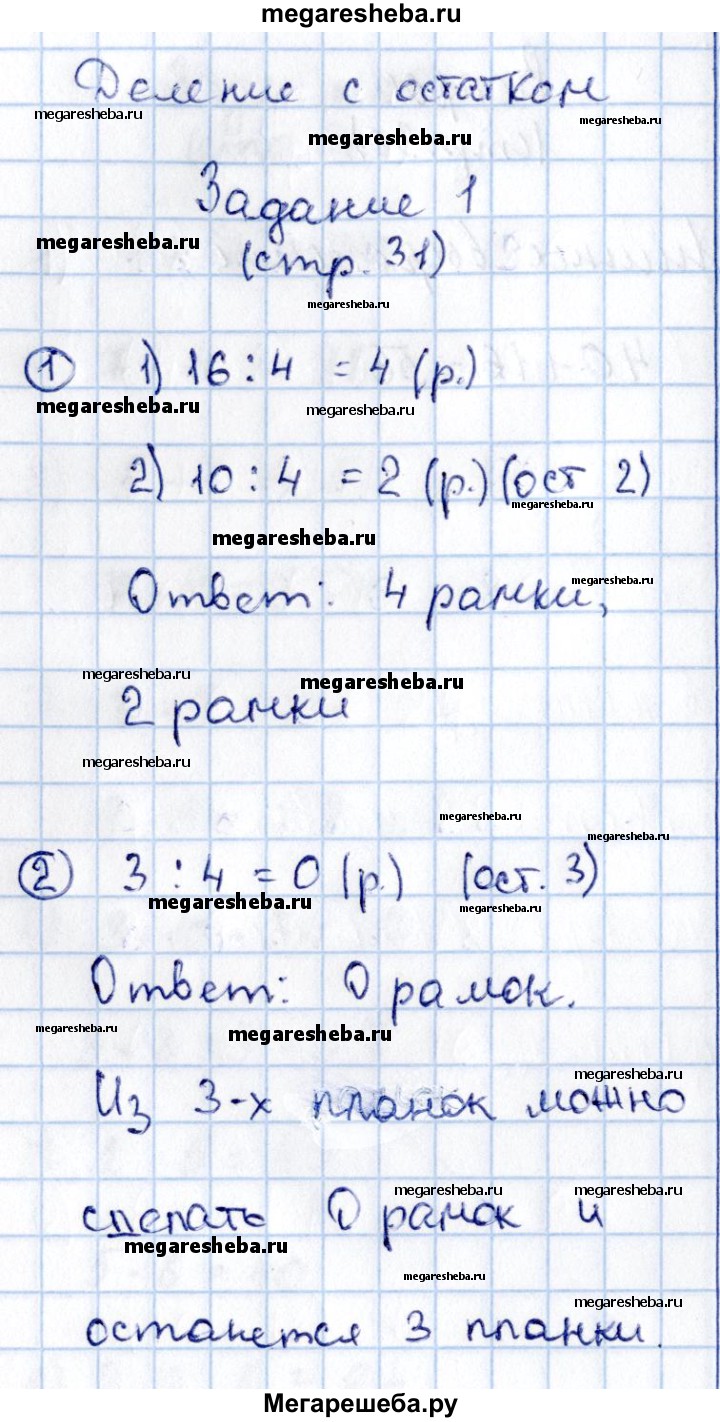 megaresheba.ru
Деление с остатком
megaresheba.ru
megaresheba.ru
megaresheba.ru
Задание 1
megaresheba.ru
(стр. 31)
megaresheba.ru
① 1) 16 : 4 = 4 (р.)
megaresheba.ru
megaresheba.ru
2) 10 : 4 = 2 (р.) (ост 2)
megaresheba.ru
megaresheba.ru
megaresheba.ru
Ответ: 4 рамки,
megaresheba.ru
megaresheba.ru
2 рамки
megaresheba.ru
megaresheba.ru
megaresheba.ru
② 3 : 4 = 0 (р.) (ост. 3)
megaresheba.ru
megaresheba.ru
Ответ: 0 рамок.
megaresheba.ru
megaresheba.ru
megaresheba.ru
Из 3-х планок можно
megaresheba.ru
megaresheba.ru
сделать 0 рамок и
megaresheba.ru
megaresheba.ru
megaresheba.ru
останется 3 планки.
megaresheba.ru
Мегарешеба.ру